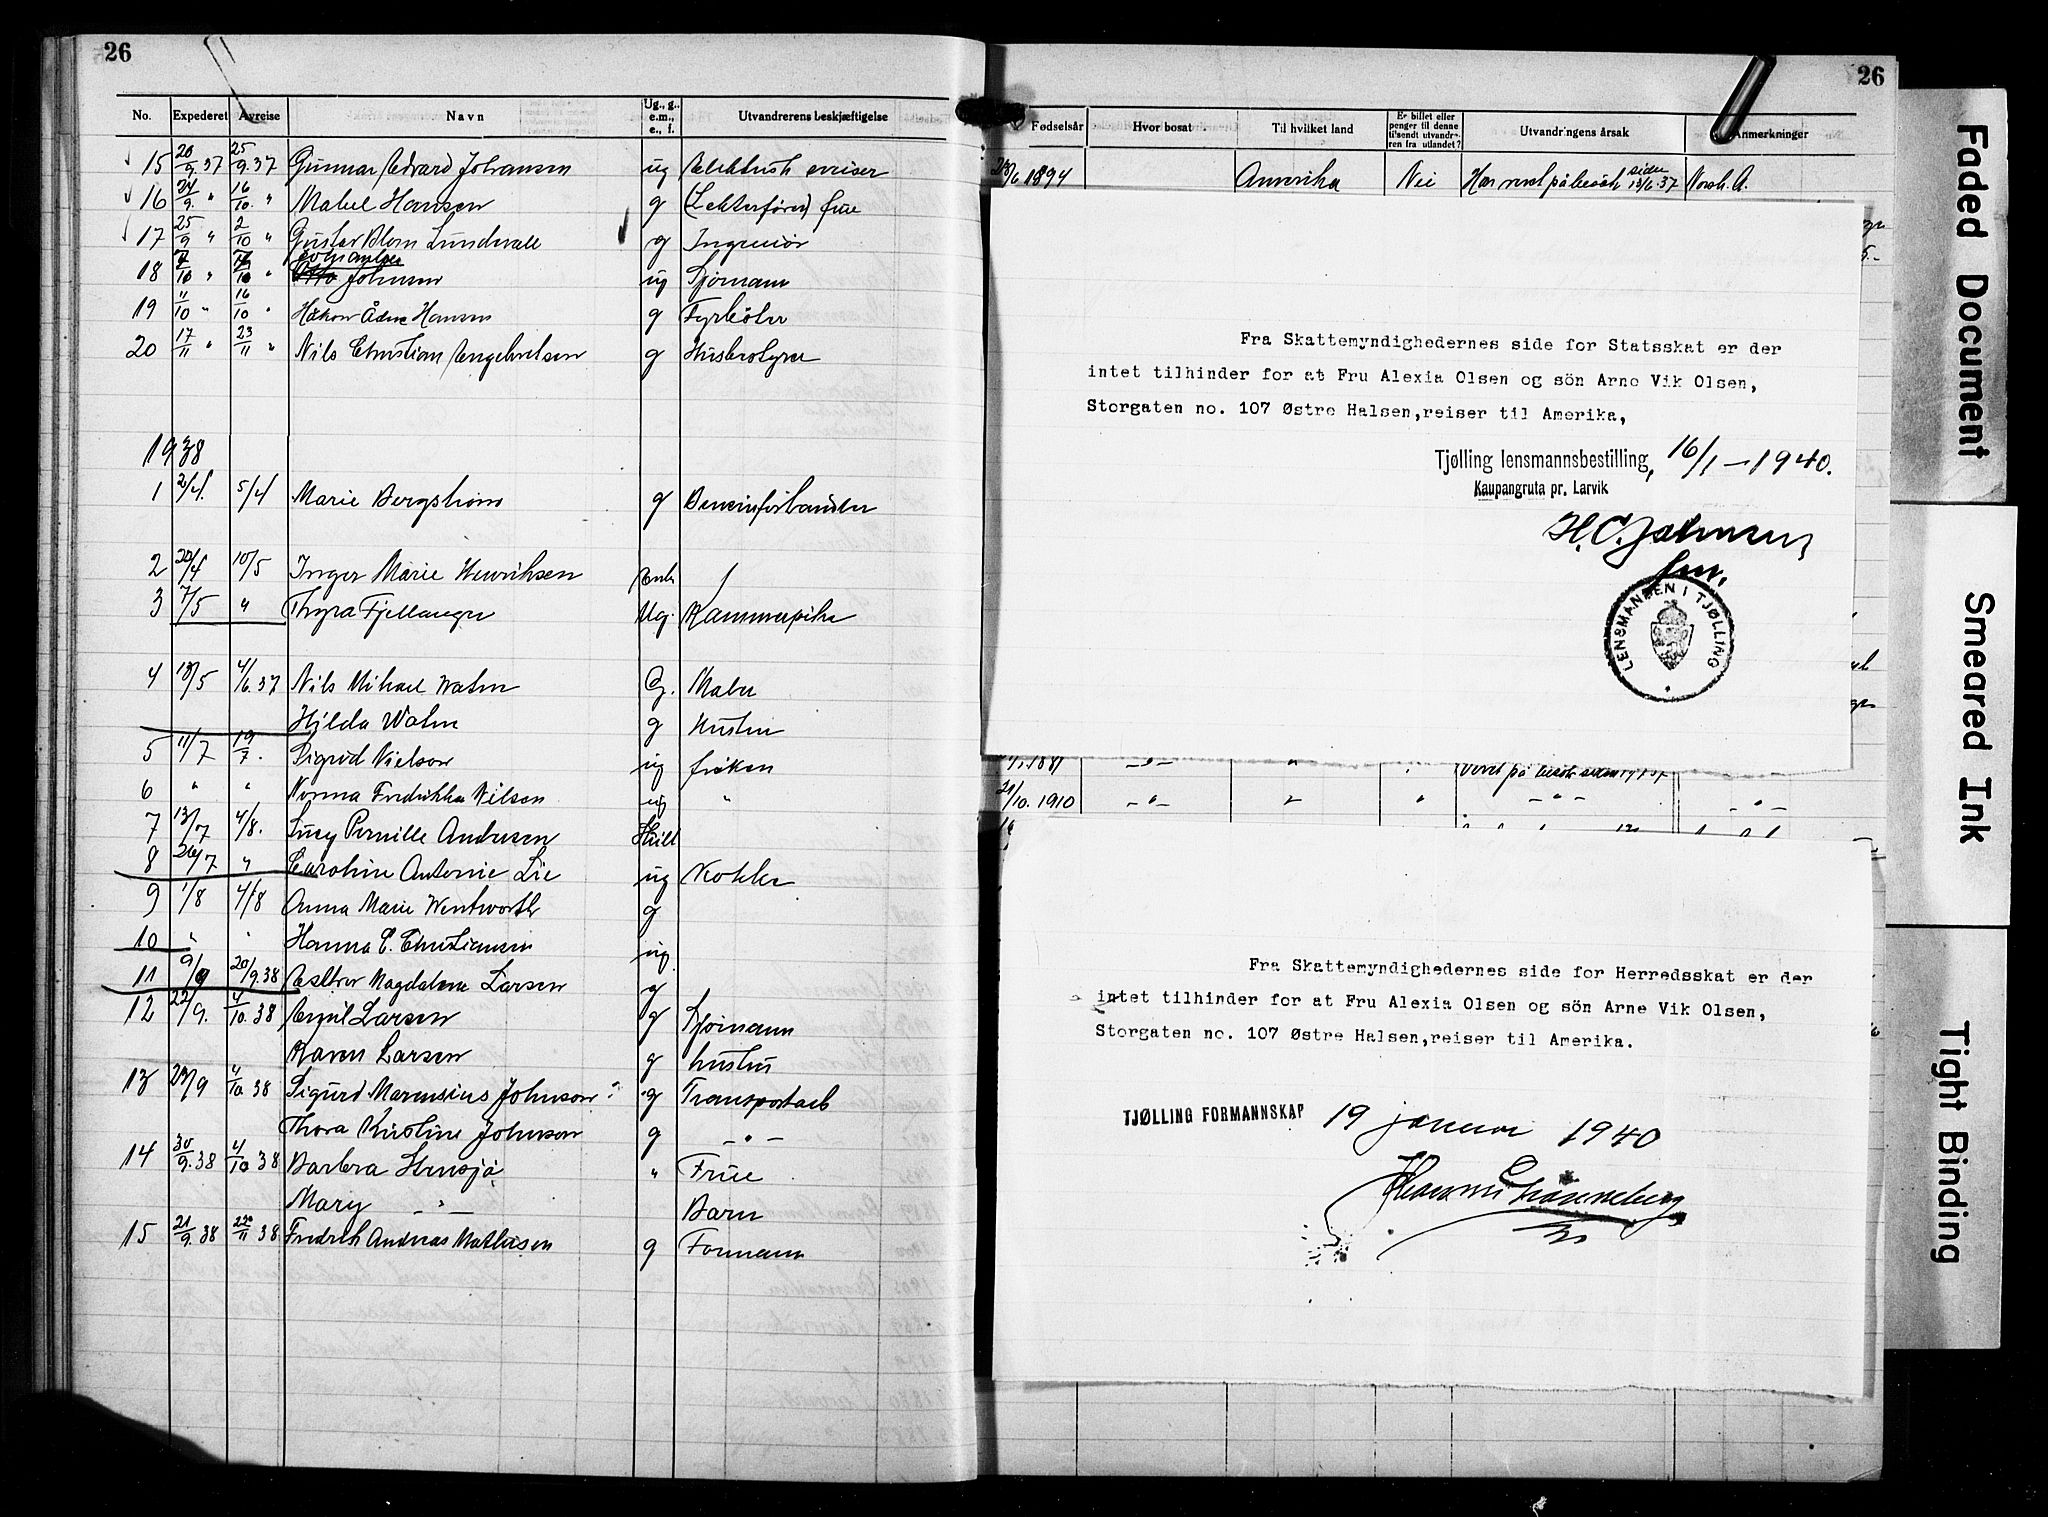 26
No. Expederet Avreise Navn Ug., g., e.m., e., f. Utvandrerens beskjæftigelse
15 20/9.37 25/9.37 Gunnar Edvard Johansen ug Elektrisk sveiser
16 24/9. " 16/10. " Mabel Hansen g (Lekterfører) frue
17 25/9 " 2/10 " Gustav Blom Lundvall g Ingeniør
18 /10 " /10 " Johnsen ug Sjømann
19 11/10 " 16/10 " Håkon Ådne Hansen g Fyrbøter
20 17/11 " 23/11 " Nils Christian Engebretsen g Husbestyrer
1938
1 2/4. 5/4 Marie Bergstrøm g
2 20/4 10/5 Inger Marie Henriksen Enk
3 7/5 " Thyra Fjellanger Ug. Kammerpike
4 13/5 4/6.37 Nils Mikael Watne G. Maler
Hilda Watne g Hustru
5 11/7 19/7. Sigrid Nielson ug frøken
6 " " Norma Fredrikke Nilsen ug "
7 13/7 4/8. Lucy Pernille Andersen Skilt
8 26/7 " Caroline Antonie Lie ug Kokke
9 1/8 4/8 Anna Marie Wentworth g
10 " " Hanna C. Christiansen ug.
11 9/9 20/9.38 Magdalene Larsen g
12 22/9. 4/10.38 Emil Larsen g Sjømann
Karen Larsen g hustru
13 23/9 4/10 38 Sigurd Marensius Johnson g Transportarb
Thora Kristine Johnson g — " —
14 30/9.38 4/10 38 Barbra " Frue
Mary — " — Barn
15 21/9.38 22/11 38 Fredrik Andreas Mathisen g Formann
26
Fødselsår Hvor bosat Til hvilket land Er billet eller penger til denne tilsendt utvandreren fra utlandet? Utvandringens årsak Anmerkninger
/6 1894 Amerika Nei Har været på besøk siden 13/6.37 Norsk. A.
Fra Skattemyndighedernes side for Statsskat er der
intet tilhinder for at Fru Alexia Olsen og sön Arne Vik Olsen,
Storgaten no. 107 Østre Halsen,reiser til Amerika,
Tjølling lensmannsbestilling, 16/1 - 1940.
Kaupangruta pr. Larvik
H. C. Johnsen
LENSMANDEN I TJØLLING
1881 — " — " "
21/10. 1910 — " — " " — " — — " —
Fra Skattemyndighedernes side for Herredsskat er der
intet tilhinder for at Fru Alexia Olsen og sön Arne Vik Olsen,
Storgaten no. 107 Østre Halsen,reiser til Amerika.
TJØLLING FORMANNSKAP 19 januar 1940
Faded Document
Smeared Ink
Tight Binding